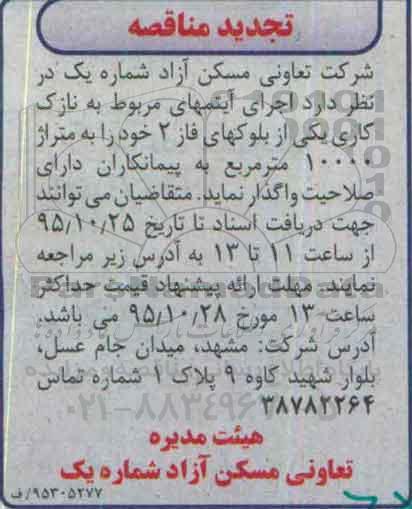 تجدید مناقصه
شرکت تعاونی مسکن آزاد شماره یک در
نظر دارد اجرای آیتمهای مربوط به نازک
کاری یکی از بلوکهای فاز ۲ خود را به متراژ
۱۰۰۰۰ مترمربع به پیمانکاران دارای
صلاحیت واگذار نماید. متقاضیان می توانند
جهت دریافت اسناد تا تاریخ ۹۵/۱۰/۲۵
از ساعت ۱۱ تا ۱۳ به آدرس زیر مراجعه
نمایند. مهلت ارائه پیشنهاد قیمت حداکثر
ساعت ۱۳ مورخ ۹۵/۱۰/۲۸ می باشد.
آدرس شرکت: مشهد، میدان جام عسل،
بلوار شهید کاوه ۹ پلاک ۱ شماره تماس
۳۸۷۸۲۲۶۴
هیئت مدیره
تعاونی مسکن آزاد شماره یک
۹۵۳۰۵۲۷۷/ف